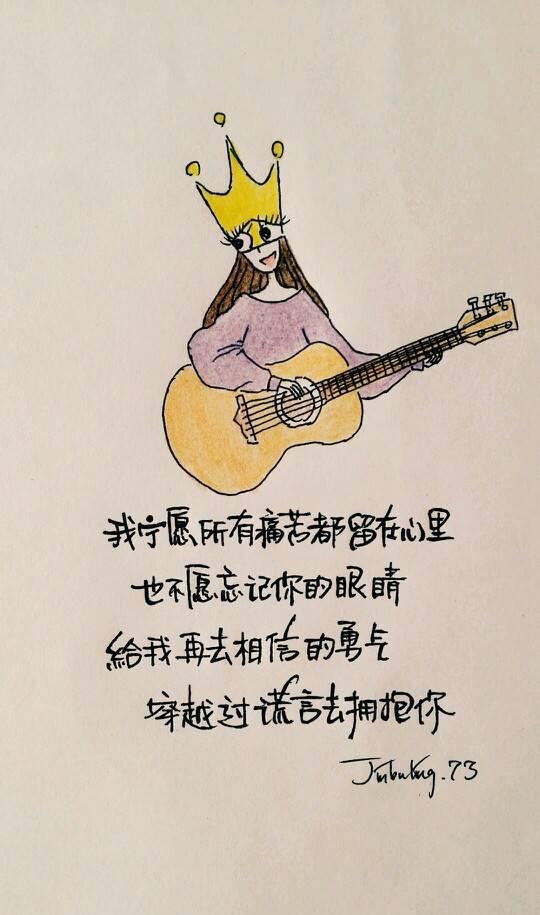 我宁愿所有痛苦都留在心里
也不愿忘记你的眼睛
給我再去相信的勇气
穿越过谎言去拥抱你